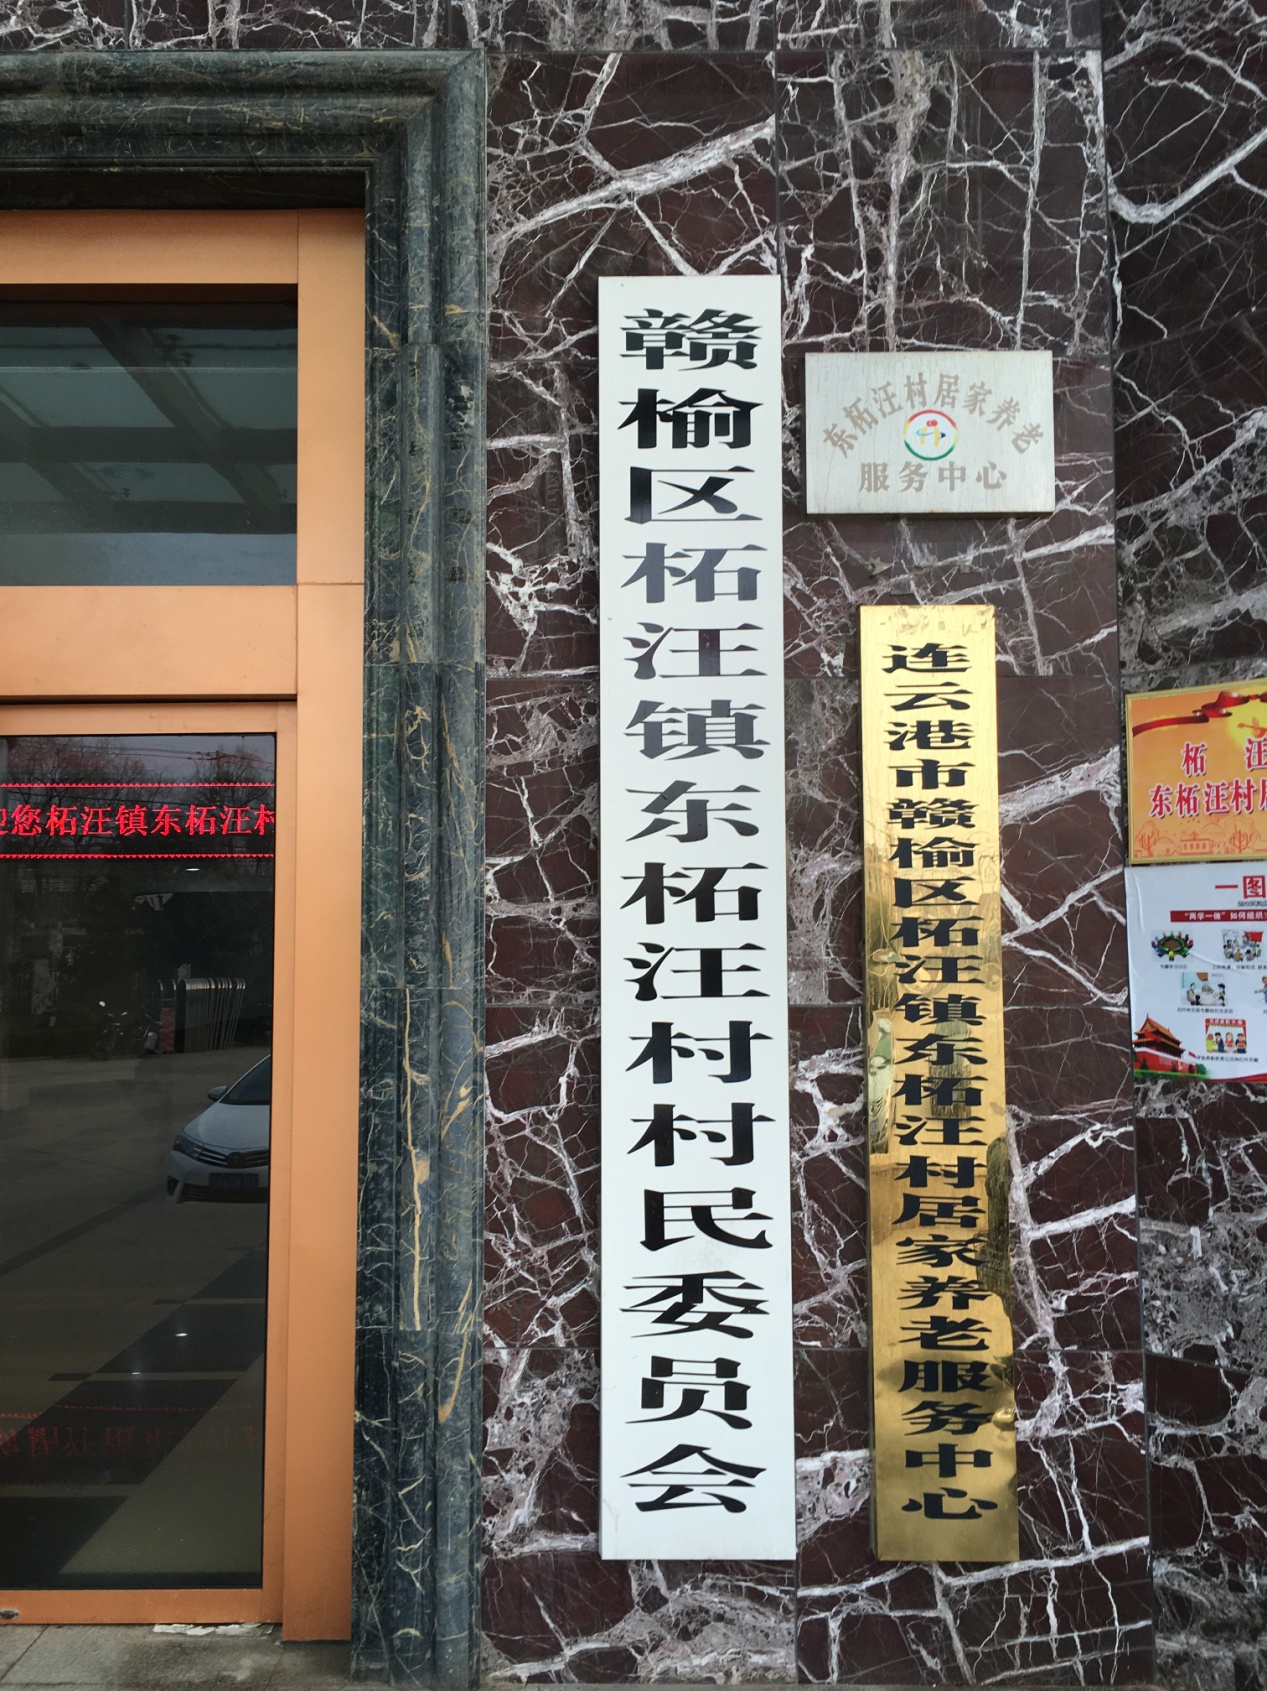 赣榆区柘汪镇东柘汪村村民委员会
东柘汪村居家养老
服务中心
连云港市赣榆区柘汪镇东柘汪村居家养老服务中心
您柘汪镇东柘汪村
柘 汪
东柘汪村
一图
"两学一做"如何组织